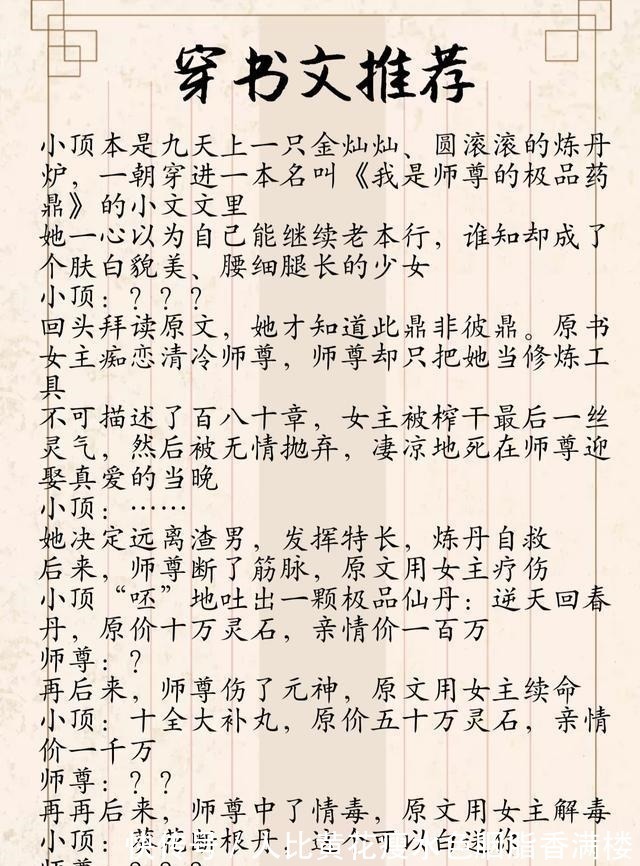 穿书文推荐
小顶本是九天上一只金灿灿、圆滚滚的炼丹
炉，一朝穿进一本名叫《我是师尊的极品药
鼎》的小文文里
她一心以为自己能继续老本行，谁知却成了
个肤白貌美、腰细腿长的少女
小顶：？？？
回头拜读原文，她才知道此鼎非彼鼎。原书
女主痴恋清冷师尊，师尊却只把她当修炼工
具
不可描述了百八十章，女主被榨干最后一丝
灵气，然后被无情抛弃，凄凉地死在师尊迎
娶真爱的当晚
小顶：……
她决定远离渣男，发挥特长，炼丹自救
后来，师尊断了筋脉，原文用女主疗伤
小顶“呸”地吐出一颗极品仙丹：逆天回春
丹，原价十万灵石，亲情价一百万
师尊：？
再后来，师尊伤了元神，原文用女主续命
小顶：十全大补丸，原价五十万灵石，亲情
价一千万
师尊：？？
再再后来，师尊中了情毒，原文用女主解毒
小顶：根丹，这个可以白送你
快传号
人比黄花瘦水
指香满楼